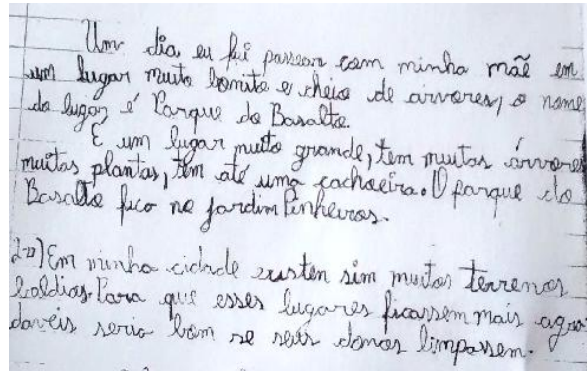 Um dia eu fui passear com minha mãe em
um lugar muito bonito e cheio de árvores, o nome
do lugar é Parque do Basalto.
É um lugar muito grande, tem muitas árvores
muitas plantas, tem até uma cachoeira. O parque do
Basalto fica no Jardim Pinheiros.
2-a) Em minha cidade existen sim muitos terrenos
baldios. Para que esses lugares ficassem mais agra-
daveis seria bom se seus donos limpassem.